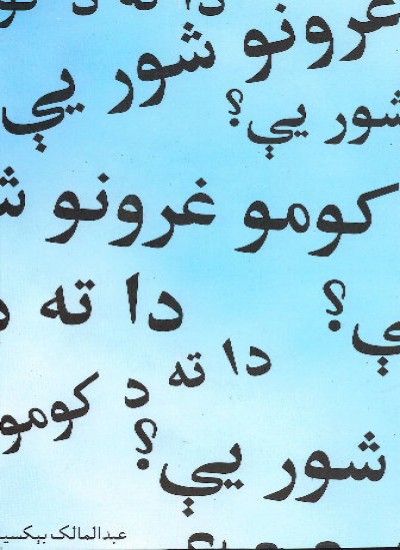 غرونو شور يې
شور يې؟
کومو غرونو
دا ته
دا ته د کومو
شور يې؟
عبدالمالک بېکسي